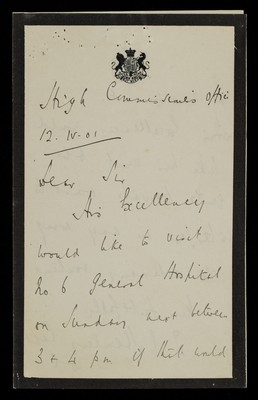 High Commissioner's Office
12. IV. 01
Dear Sir
His Excellency
would like to visit
No 6 General Hospital
on Sunday next between
3 + 4 pm if that would